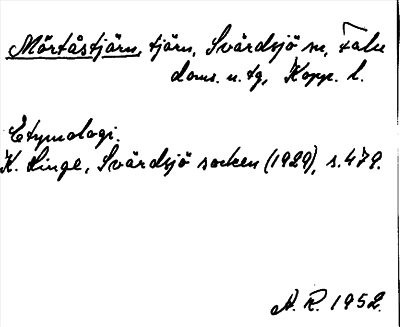 Mörtåstjärn, tjärn, Svärdsjö sn, Falu
doms. n. tg, Kopp. l.
Etymologi.
K. Linge, Svärdsjö socken (1929), s. 479.
A. R. 1952.